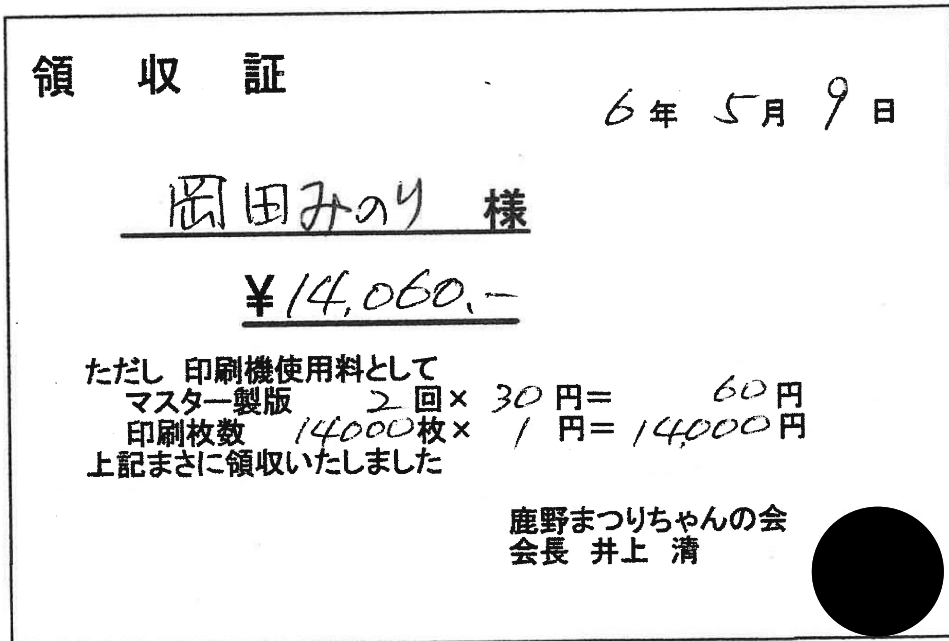 領収証
6年 5月 9日
岡田みのり 様
¥14,060.-
ただし 印刷機使用料として
マスター製版 2回× 30円= 60円
印刷枚数 14000枚× 1円= 14,000円
上記まさに領収いたしました
鹿野まつりちゃんの会
会長 井上 清